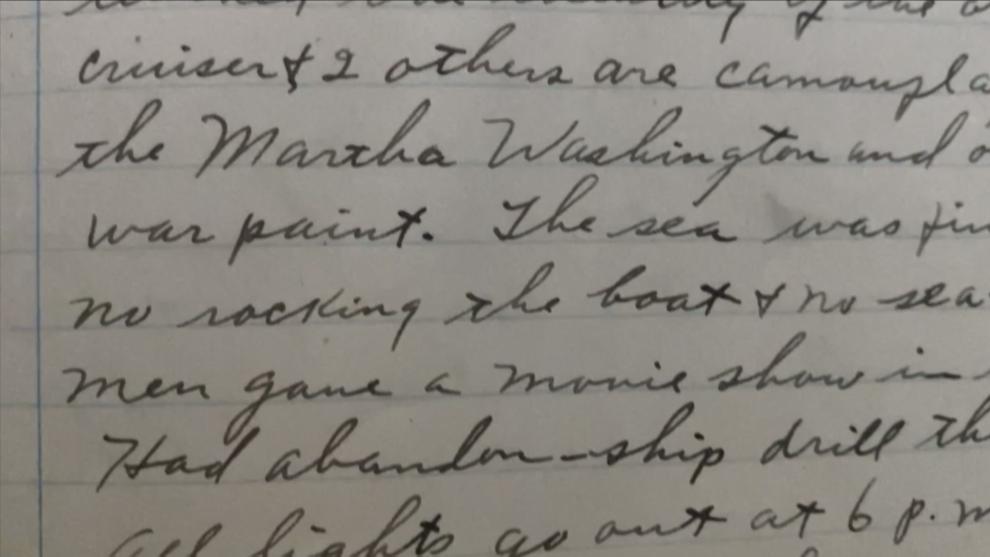 of the
cruiser & 2 others are camoufla
the Martha Washington and o
war paint. The sea was fin
no rocking the boat & no sea
men gave a movie show in
Had abandon-ship drill th
All lights go out at 6 p.m